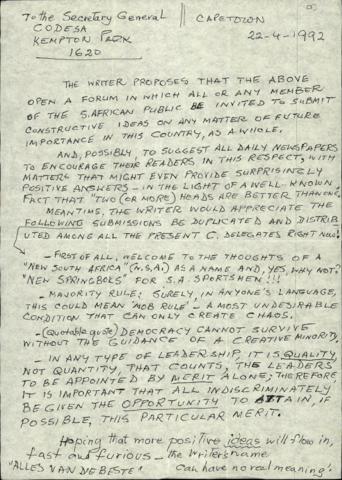 To the Secretary General || CAPETOWN
CODESA
KEMPTON PARK 22-4-1992
1620
THE WRITER PROPOSES THAT THE ABOVE
OPEN A FORUM IN WHICH ALL OR ANY MEMBER
OF THE S.AFRICAN PUBLIC BE INVITED TO SUBMIT
CONSTRUCTIVE IDEAS ON ANY MATTER OF FUTURE
IMPORTANCE IN THIS COUNTRY, AS A WHOLE.
AND, POSSIBLY TO SUGGEST ALL DAILY NEWSPAPERS
TO ENCOURAGE THEIR READERS IN THIS RESPECT, WITH
MATTERS THAT MIGHT EVEN PROVIDE SURPRISINGLY
POSITIVE ANSWERS - IN THE LIGHT OF A WELL-KNOWN
FACT THAT "TWO (OR MORE) HEADS ARE BETTER THAN ONE.
MEANTIME, THE WRITER WOULD APPRECIATE THE
FOLLOWING SUBMISSIONS BE DUPLICATED AND DISTRIB
UTED AMONG ALL THE PRESENT C. DELEGATES RIGHT NOW:
- FIRST OF ALL, WELCOME TO THE THOUGHTS OF A
"NEW SOUTH AFRICA" (N.S.A.) AS A NAME AND, YES, WHY NOT?
"NEW SPRINGBOKS" FOR S.A. SPORTSMEN!!!
- MAJORITY RULE, SURELY, IN ANYONE'S LANGUAGE,
THIS COULD MEAN 'MOB RULE' - A MOST UNDESIRABLE
CONDITION THAT CAN ONLY CREATE CHAOS.
- (Quotable quote) DEMOCRACY CANNOT SURVIVE
WITHOUT THE GUIDANCE OF A CREATIVE MINORITY.
- IN ANY TYPE OF LEADERSHIP, IT IS QUALITY,
NOT QUANTITY, THAT COUNTS, THE LEADERS
TO BE APPOINTED BY MERIT ALONE; THEREFORE
IT IS IMPORTANT THAT ALL INDISCRIMINATELY
BE GIVEN THE OPPORTUNITY TO ATTAIN, IF
POSSIBLE, THIS PARTICULAR MERIT.
Hoping that more positive ideas will flow in,
fast and furious - the writer's name
"ALLES VAN DIE BESTE" can have no real meaning.